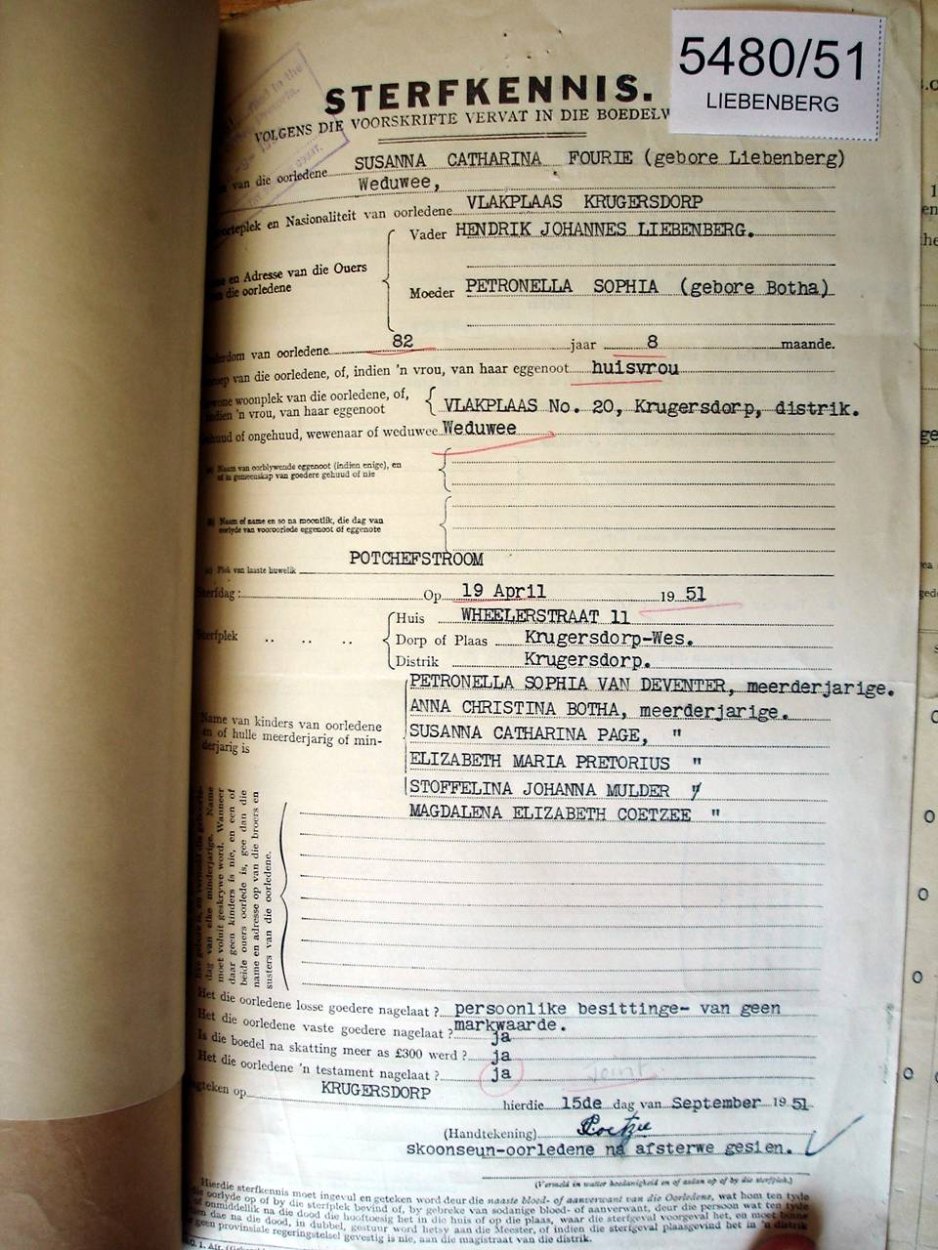 5480/51
LIEBENBERG
STERFKENNIS.
VOLGENS DIE VOORSKRIFTE VERVAT IN DIE
van die oorledene SUSANNA CATHARINA FOURIE (gebore Liebenberg)
Weduwee,
en Nasionaliteit van oorledene VLAKPLAAS KRUGERSDORP
Vader HENDRIK JOHANNES LIEBENBERG.
en Adresse van die Ouers
die oorledene
Moeder PETRONELLA SOPHIA (gebore Botha)
van oorledene 82 jaar 8 maande.
van die oorledene, of, indien 'n vrou, van haar eggenoot huisvrou
woonplek van die oorledene, of,
indien 'n vrou, van haar eggenoot VLAKPLAAS No. 20, Krugersdorp, distrik.
of ongehuud, wewenaar of weduwee Weduwee
Naam van oorblywende eggenoot (indien enige), en
of in gemeenskap van goedere gehuud of nie
Naam of name en so na moontlik, die dag van
oorlyde van vooroorlede eggenoot of eggenote
Plek van laaste huwelik POTCHEFSTROOM
Sterfdag: Op 19 April 1951
Sterfplek .. .. .. Huis WHEELERSTRAAT 11
Dorp of Plaas Krugersdorp-Wes.
Distrik Krugersdorp.
Name van kinders van oorledene
en of hulle meerderjarig of min-
derjarig is
PETRONELLA SOPHIA VAN DEVENTER, meerderjarige.
ANNA CHRISTINA BOTHA, meerderjarige.
SUSANNA CATHARINA PAGE, "
ELIZABETH MARIA PRETORIUS "
STOFFELINA JOHANNA MULDER "
MAGDALENA ELIZABETH COETZEE "
dag van elke minderjarige. Name
moet voluit geskrywe word. Wanneer
daar geen kinders is nie, en een of
beide ouers oorlede is, gee dan die
name en adresse op van die broers en
susters van die oorledene.
Het die oorledene losse goedere nagelaat? persoonlike besittinge- van geen
markwaarde.
Het die oorledene vaste goedere nagelaat? ja
Is die boedel na skatting meer as £300 werd? ja
Het die oorledene 'n testament nagelaat? ja Joint
op KRUGERSDORP
hierdie 15de dag van September 1951
(Handtekening) Coetzee
skoonseun-oorledene na afsterwe gesien.
(Vermeld in watter hoedanigheid en of aldan op of by die sterfplek.)
Hierdie sterfkennis moet ingevul en geteken word deur die naaste bloed- of aanverwant van die Oorledene, wat hom ten tyde
oorlyde op of by die sterfplek bevind of, by gebreke van sodanige bloed- of aanverwant, deur die persoon wat ten tyde
onmiddellik na die dood die hooftoesig het in die huis of op die plaas, waar die sterfgeval voorgeval het, en moet binne
dae na die dood, in dubbel, gestuur word hetsy aan die Meester, of indien die sterfgeval plaasgevind het in 'n distrik
geen provinsiale regeringsetel gevestig is nie, aan die magistraat van die distrik.